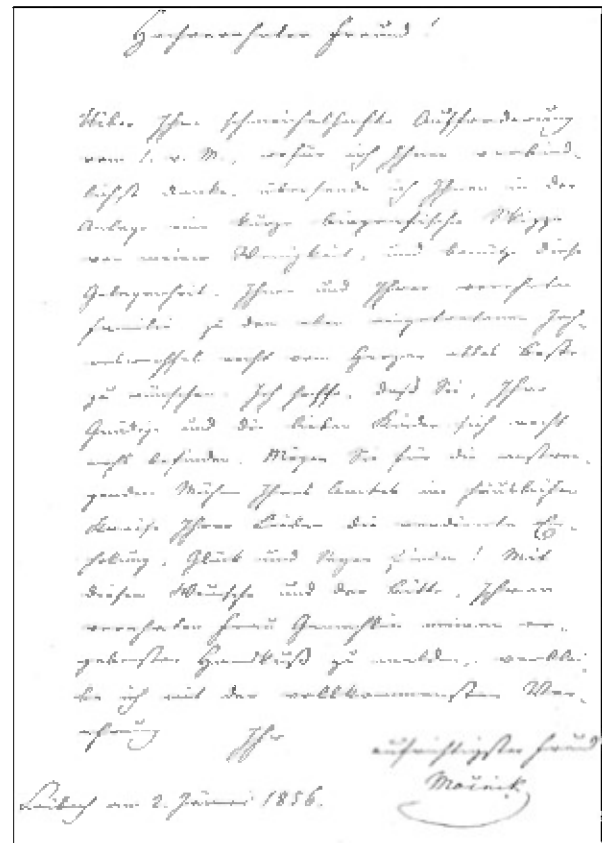 Hochverehrter Freund!
Über Ihre schmeichelhafte Aufforderung
vom 1. v. M., wofür ich Ihnen verbind-
lichst danke, übersende ich Ihnen in der
Anlage eine kurze biografische Skizze
von meiner Wenigkeit, und benütze diese
Gelegenheit, Ihnen und Ihrer verehrten
Familie zu dem eben eingetretenen Jah-
reswechsel recht vom Herzen alles Beste
zu wünschen. Ich hoffe, daß Sie, Ihre
Gnädige und die lieben Kinder sich recht
wohl befinden. Mögen Sie für die anstren-
genden Mühen Ihres Amtes im häuslichen
Kreise Ihrer Lieben die verdiente Er-
holung, Glück und Segen finden! Mit
diesem Wunsche und der Bitte, Ihrer
verehrten Frau Gemahlin meinen er-
gebensten Handkuß zu melden, verblei-
be ich mit der vollkommensten Ver-
ehrung Ihr
aufrichtigster Freund
Močnik
Laibach am 2. Jänner 1856.